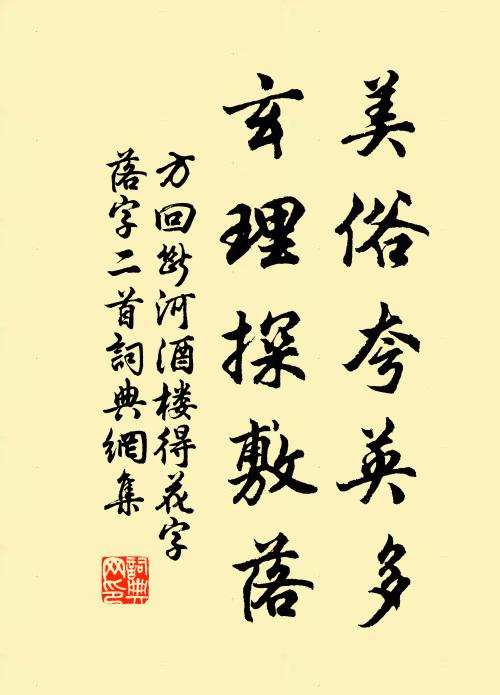 美俗夸英多
玄理探敷落
方回断河酒楼得花字
落字二首詞典網集
詞典网印